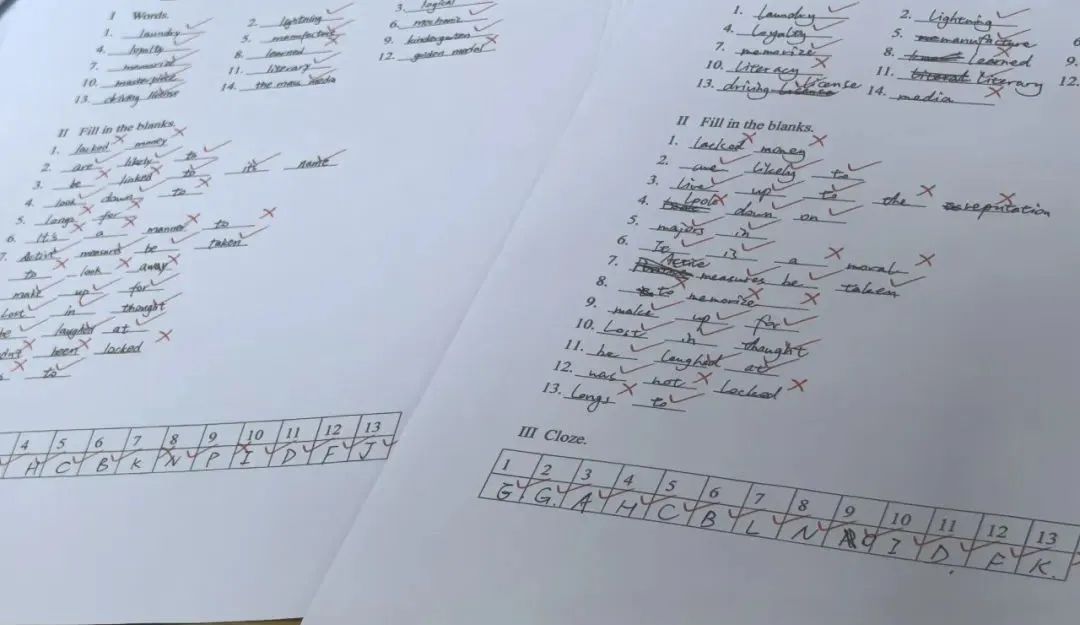 I Words.
1. laundry 2. lightning 3. logical
4. loyalty 5. manufacture 6. mechanic
7. memorize 8. learned 9. kindergarten
10. masterpiece 11. literary 12. golden medal
13. driving license 14. the mass media
II Fill in the blanks.
1. lacked money
2. are likely to
3. be linked to it's name
4. look down to
5. longs for
6. It's a manner to
7. Active measures be taken
to look away
make up for
Lost in thought
be laughed at
been locked
to
4 5 6 7 8 9 10 11 12 13
H C B K N P I D F J
1. Laundry 2. Lightning
4. Legality 5. memanufacture 6
7. memorize 8. learned 9.
10. Literacy 11. Literary 12.
13. driving License 14. media
II Fill in the blanks.
1. lacked money
2. are likely to
3. live up to the reputation
4. Look down on
5. majors in
6. It is a moral
7. Active measures be taken
8. to memorize
9. make up for
10. Lost in thought
11. be laughed at
12. was not Locked
13. Longs to
III Cloze.
1 2 3 4 5 6 7 8 9 10 11 12 13
G G. A H C B L N O I D F K.